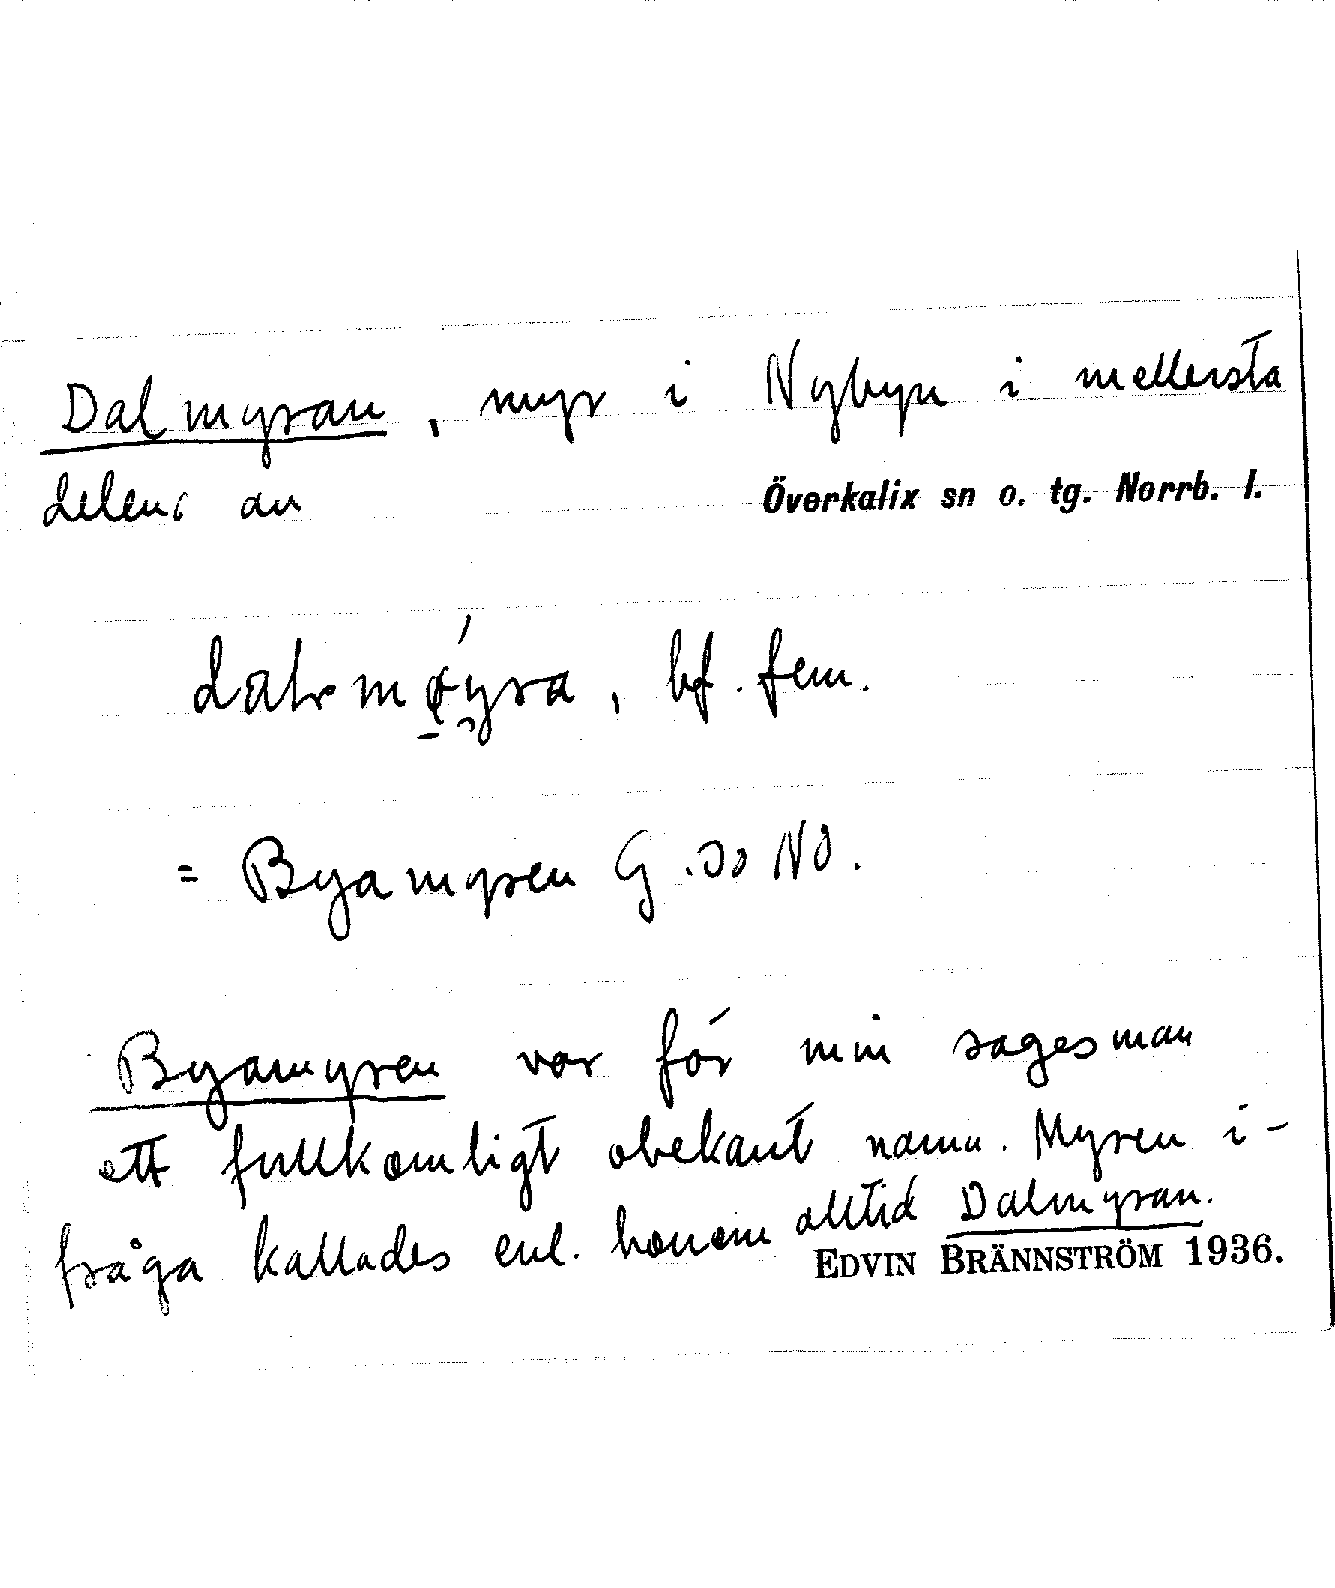 Dalmyran, myr i Nybyn i mellersta
delen av Överkalix sn o. tg. Norrb. l.
bf. fem.
= Byamyren G. 30 NO.
Byamyren var för min sagesman
ett fullkomligt obekant namn. Myren i-
fråga kallades enl. honom alltid Dalmyran.
EDVIN BRÄNNSTRÖM 1936.